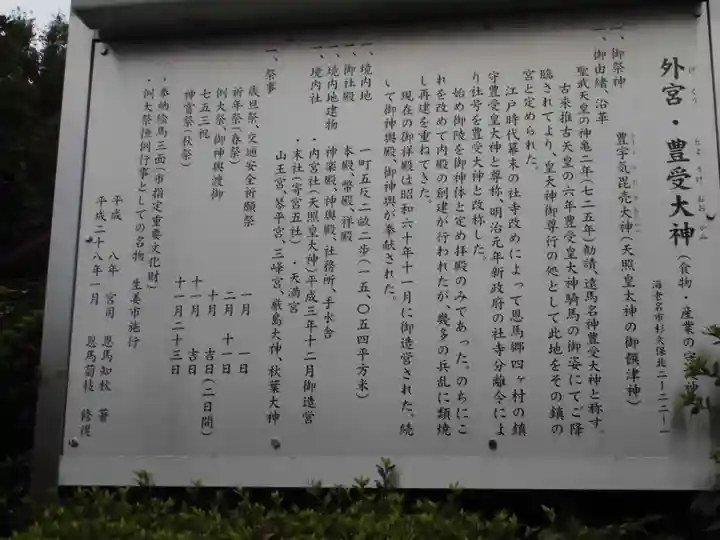 外宮・豊受大神(食物・産業の守護神)
げくう とようけおおかみ
海老名市杉久保北二ー二二ー一
一、御祭神 豊宇気毘売大神(天照皇大神の御饌津神)
一、御由緒、沿革
聖武天皇の神亀二年(七二五年)勧請、遠馬名神豊受大神と称す。
古来推古天皇の六年豊受皇大神騎馬の御姿にてご降
臨されてより、皇大神御尊行の処として此地をその鎮の
宮と定められた。
江戸時代幕末の社寺改めによって恩馬郷四ヶ村の鎮
守豊受皇大神と尊称、明治元年新政府の社寺分離令によ
り社号を豊受大神と改称した。
始め御陵を御神体と定め拝殿のみであった。のちにこ
れを改めて内殿の創建が行われたが、幾多の兵乱に類焼
し再建を重ねてきた。
現在の御拝殿は昭和六十年十一月に御造営された。続
いて御神輿殿、御神輿が奉献された。
一、境内地 一町五反二畝二歩(一五、〇五四平方米)
一、御社殿 本殿、幣殿、拝殿
一、境内地建物 神楽殿、神輿殿、社務所、手水舎
一、境内社 ・内宮社(天照皇大神)平成三年十二月御造営
・末社(寄宮五社) ・天満宮
山王宮、琴平宮、三峰宮、厳島大神、秋葉大神
一、祭事
歳旦祭、交通安全祈願祭 一月 一日
祈年祭(春祭) 二月 十一日
例大祭、御神輿渡御 十月 吉日(二日間)
七五三祝 十一月 吉日
神嘗祭(秋祭) 十一月二十三日
・奉納絵馬三面(市指定重要文化財)
・例大祭恒例行事としての名物 生姜市施行
平成 八年 宮司 恩馬知秋 著
平成二十八年一月 恩馬菊枝 修復